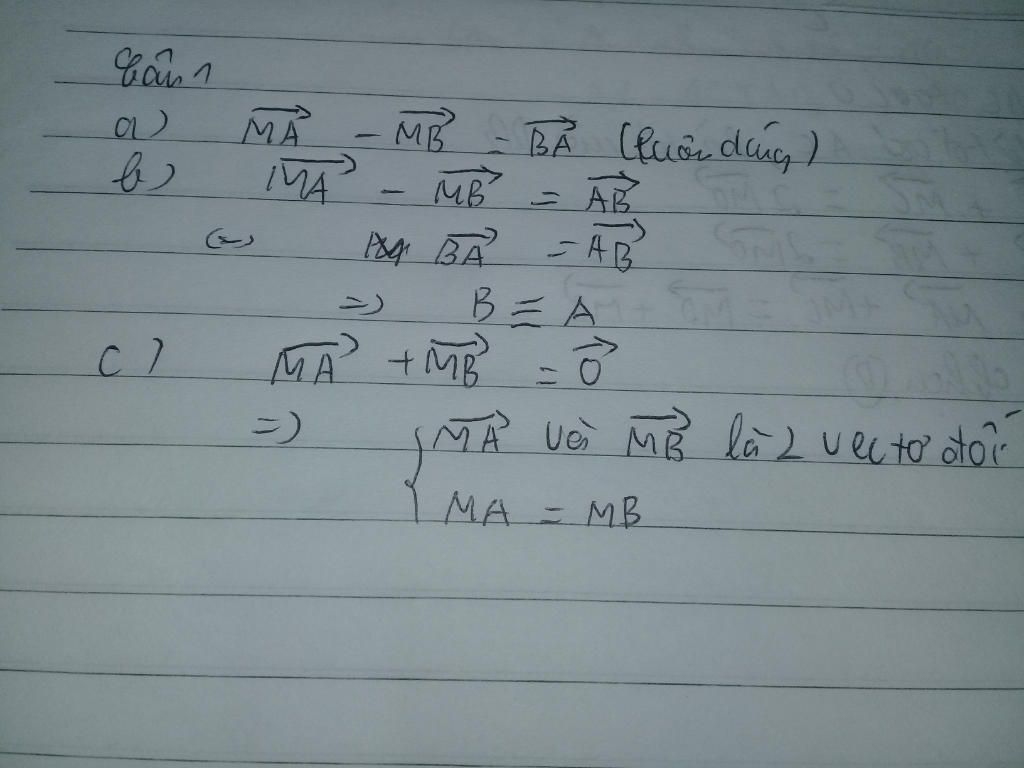 Câu 1
a) MA→ - MB→ = BA→ (luôn đúng)
b) MA→ - MB→ = AB→
(=) BA→ = AB→
=) B ≡ A
c) MA→ + MB→ = 0→
=) { MA→ với MB→ là 2 vectơ đối
MA = MB